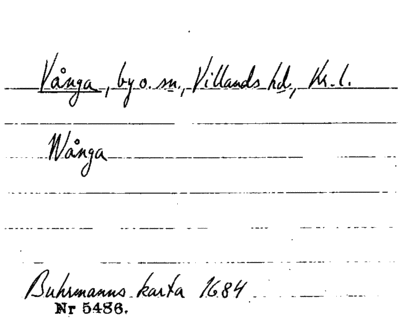 Vånga, by o. sn., Villands hd., Kr. l.
Wånga
Buhrmanns karta 1684
Nr 5486.